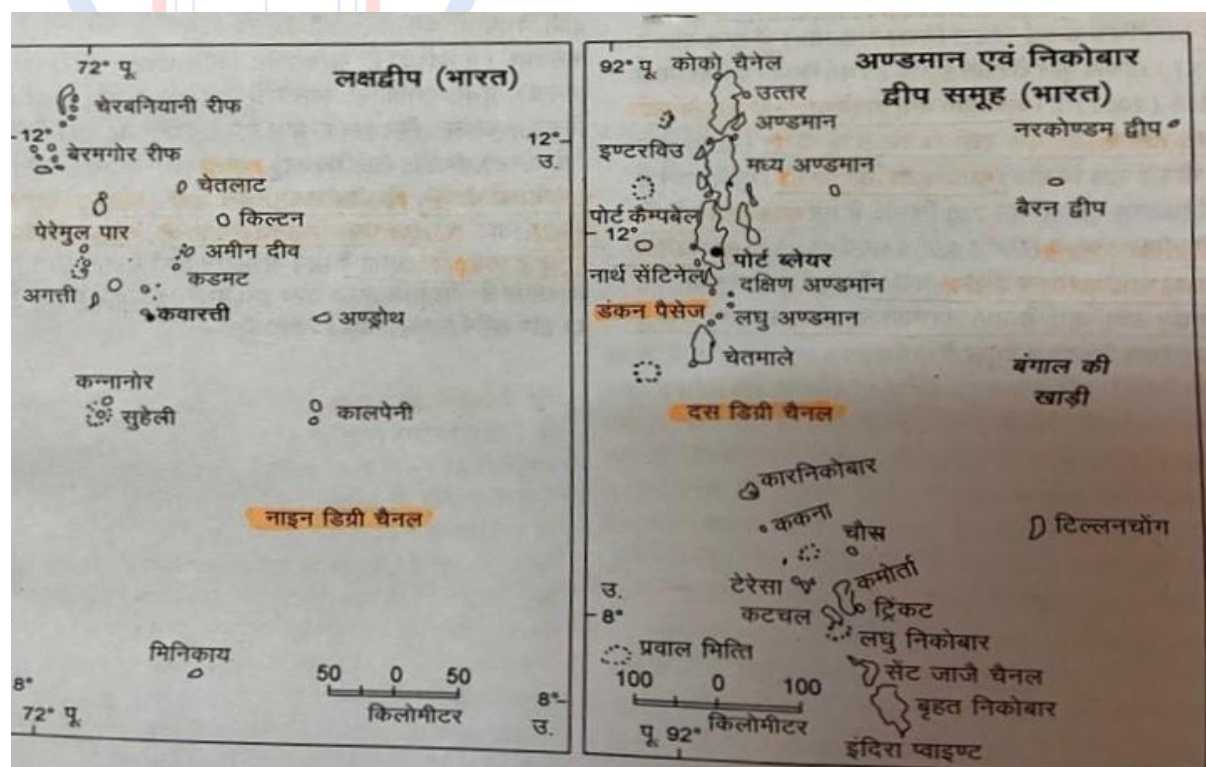 72° पू.
लक्षद्वीप (भारत)
चेरबनियानी रीफ
12°
12°
उ.
बेरमगोर रीफ
चेतलाट
किल्टन
पेरेमुल पार
अमीन दीव
कडमट
अगत्ती
कवारत्ती
अण्ड्रोथ
कन्नानोर
सुहेली
कालपेनी
नाइन डिग्री चैनल
मिनिकाय
50 0 50
किलोमीटर
8°
8°
उ.
72° पू.
92° पू.
कोको चैनेल
अण्डमान एवं निकोबार
द्वीप समूह (भारत)
उत्तर
अण्डमान
नरकोण्डम द्वीप
इण्टरविउ
मध्य अण्डमान
पोर्ट कैम्पबेल
बैरन द्वीप
12°
पोर्ट ब्लेयर
नार्थ सेंटिनेल
दक्षिण अण्डमान
डंकन पैसेज
लघु अण्डमान
चेतमाले
बंगाल की
खाड़ी
दस डिग्री चैनल
कारनिकोबार
ककना
चौस
टिल्लनचोंग
टेरेसा
कमोर्ता
उ.
8°
कटचल
ट्रिंकट
लघु निकोबार
प्रवाल भित्ति
सेंट जार्ज चैनल
100 0 100
किलोमीटर
बृहत निकोबार
पू. 92°
इंदिरा प्वाइण्ट